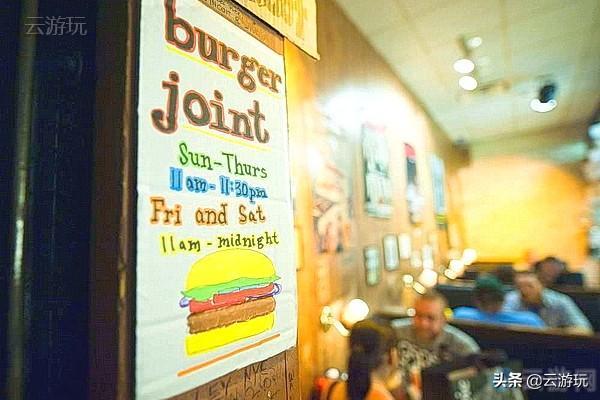 云游玩
burger
joint
Sun-Thurs
11am-11:30pm
Fri and Sat
11am-midnight
头条 @云游玩